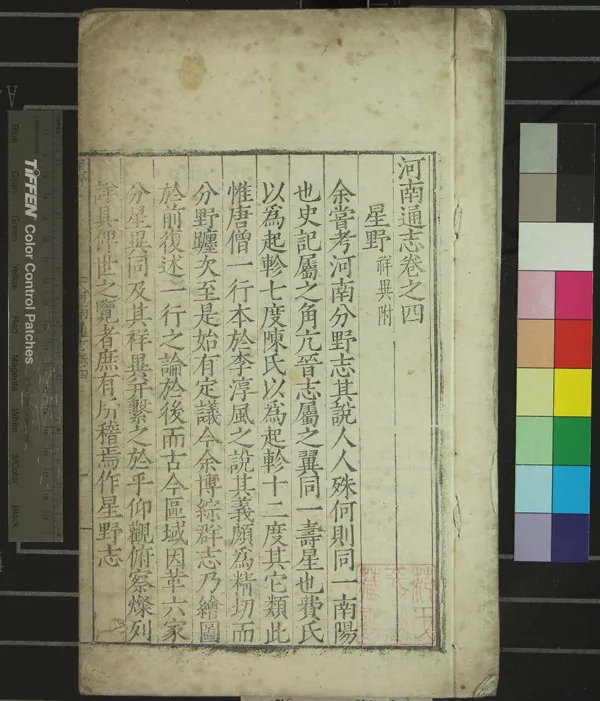 河南通志卷之四
星野 祥異附
余嘗考河南分野志其說人人殊何則同一南陽
也史記屬之角亢晉志屬之翼同一壽星也費氏
以為起軫七度陳氏以為起軫十二度其它類此
惟唐僧一行本於李淳風之說其義頗為精切而
分野躔次至是始有定議今余博綜群志乃繪圖
於前復述一行之論於後而古今區域因革六家
分星異同及其祥異并繫之於乎仰觀俯察燦列
具俾世之覽者庶有所稽焉作星野志
TIFFEN Color Control Patches